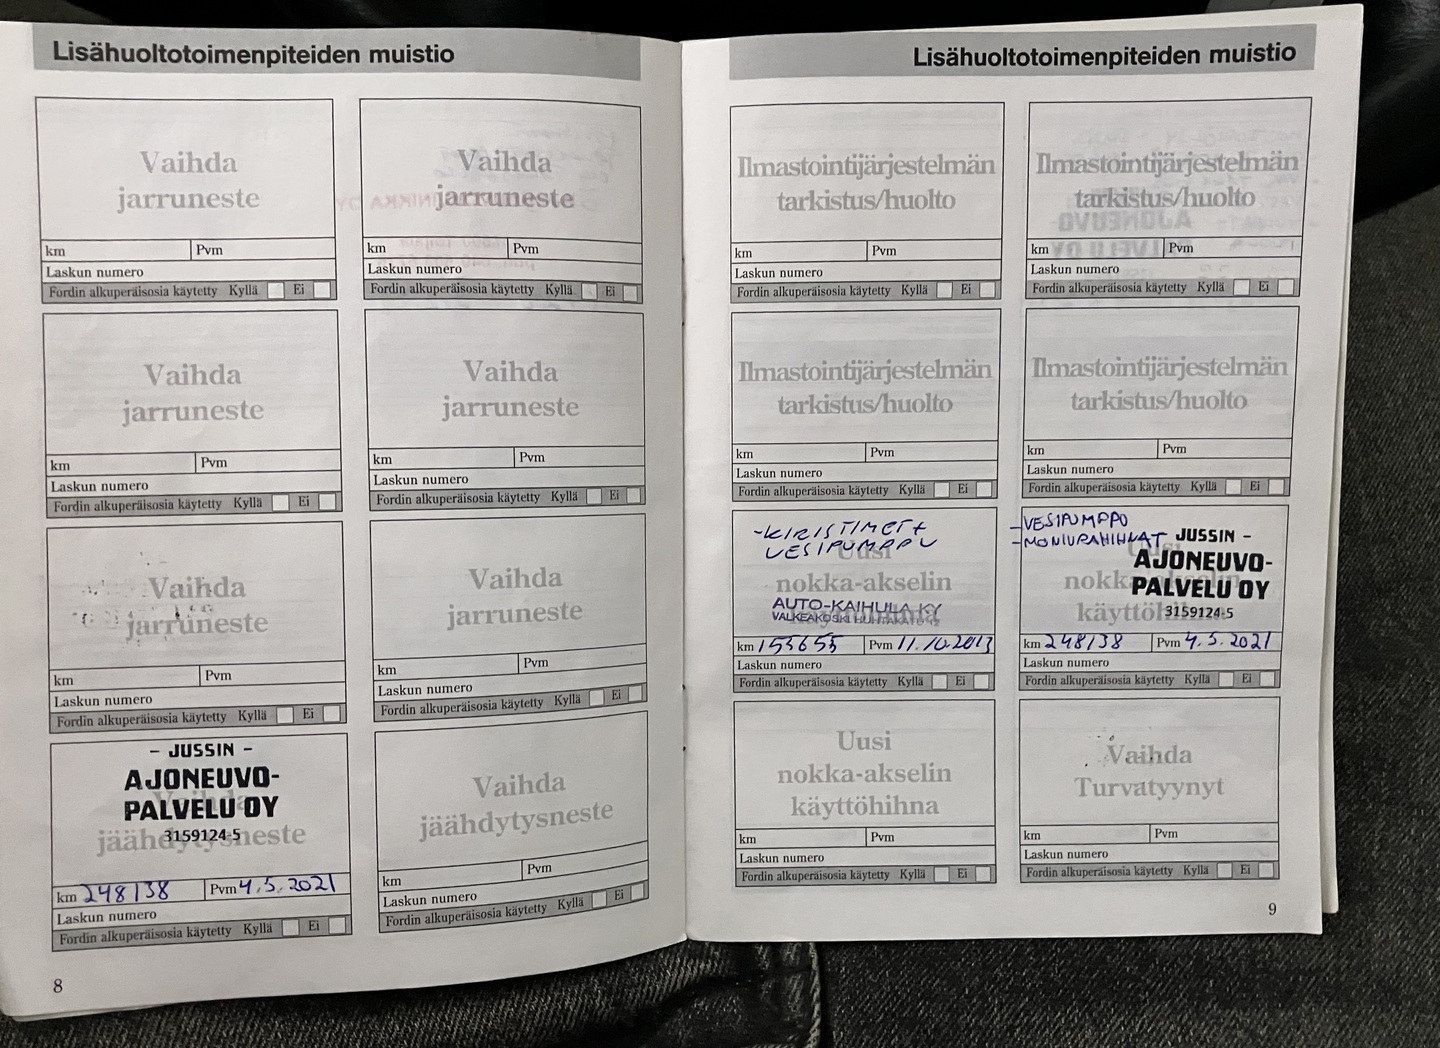 Lisähuoltotoimenpiteiden muistio
Vaihda
jarruneste
km Pvm
Laskun numero
Fordin alkuperäisosia käytetty Kyllä Ei
Vaihda
jarruneste
km Pvm
Laskun numero
Fordin alkuperäisosia käytetty Kyllä Ei
Vaihda
jarruneste
km Pvm
Laskun numero
Fordin alkuperäisosia käytetty Kyllä Ei
Vaihda
jarruneste
km Pvm
Laskun numero
Fordin alkuperäisosia käytetty Kyllä Ei
Vaihda
jarruneste
km Pvm
Laskun numero
Fordin alkuperäisosia käytetty Kyllä Ei
Vaihda
jarruneste
km Pvm
Laskun numero
Fordin alkuperäisosia käytetty Kyllä Ei
- JUSSIN -
AJONEUVO-
PALVELU OY
3159124-5
Vaihda
jäähdytysneste
km 248138 Pvm 4.5.2021
Laskun numero
Fordin alkuperäisosia käytetty Kyllä Ei
Vaihda
jäähdytysneste
km Pvm
Laskun numero
Fordin alkuperäisosia käytetty Kyllä Ei
8
Lisähuoltotoimenpiteiden muistio
Ilmastointijärjestelmän
tarkistus/huolto
km Pvm
Laskun numero
Fordin alkuperäisosia käytetty Kyllä Ei
Ilmastointijärjestelmän
tarkistus/huolto
km Pvm
Laskun numero
Fordin alkuperäisosia käytetty Kyllä Ei
Ilmastointijärjestelmän
tarkistus/huolto
km Pvm
Laskun numero
Fordin alkuperäisosia käytetty Kyllä Ei
Ilmastointijärjestelmän
tarkistus/huolto
km Pvm
Laskun numero
Fordin alkuperäisosia käytetty Kyllä Ei
-KIRISTIMET+
VESIPUMPPU
Uusi
nokka-akselin
käyttöhihna
AUTO-KAIHULA KY
VALKEAKOSKI
km 155655 Pvm 11.10.2013
Laskun numero
Fordin alkuperäisosia käytetty Kyllä Ei
-VESIPUMPPU
-MONIURAHIHNAT
JUSSIN -
AJONEUVO-
PALVELU OY
3159124-5
Uusi
nokka-akselin
käyttöhihna
km 248138 Pvm 4.5.2021
Laskun numero
Fordin alkuperäisosia käytetty Kyllä Ei
Uusi
nokka-akselin
käyttöhihna
km Pvm
Laskun numero
Fordin alkuperäisosia käytetty Kyllä Ei
Vaihda
Turvatyynyt
km Pvm
Laskun numero
Fordin alkuperäisosia käytetty Kyllä Ei
9